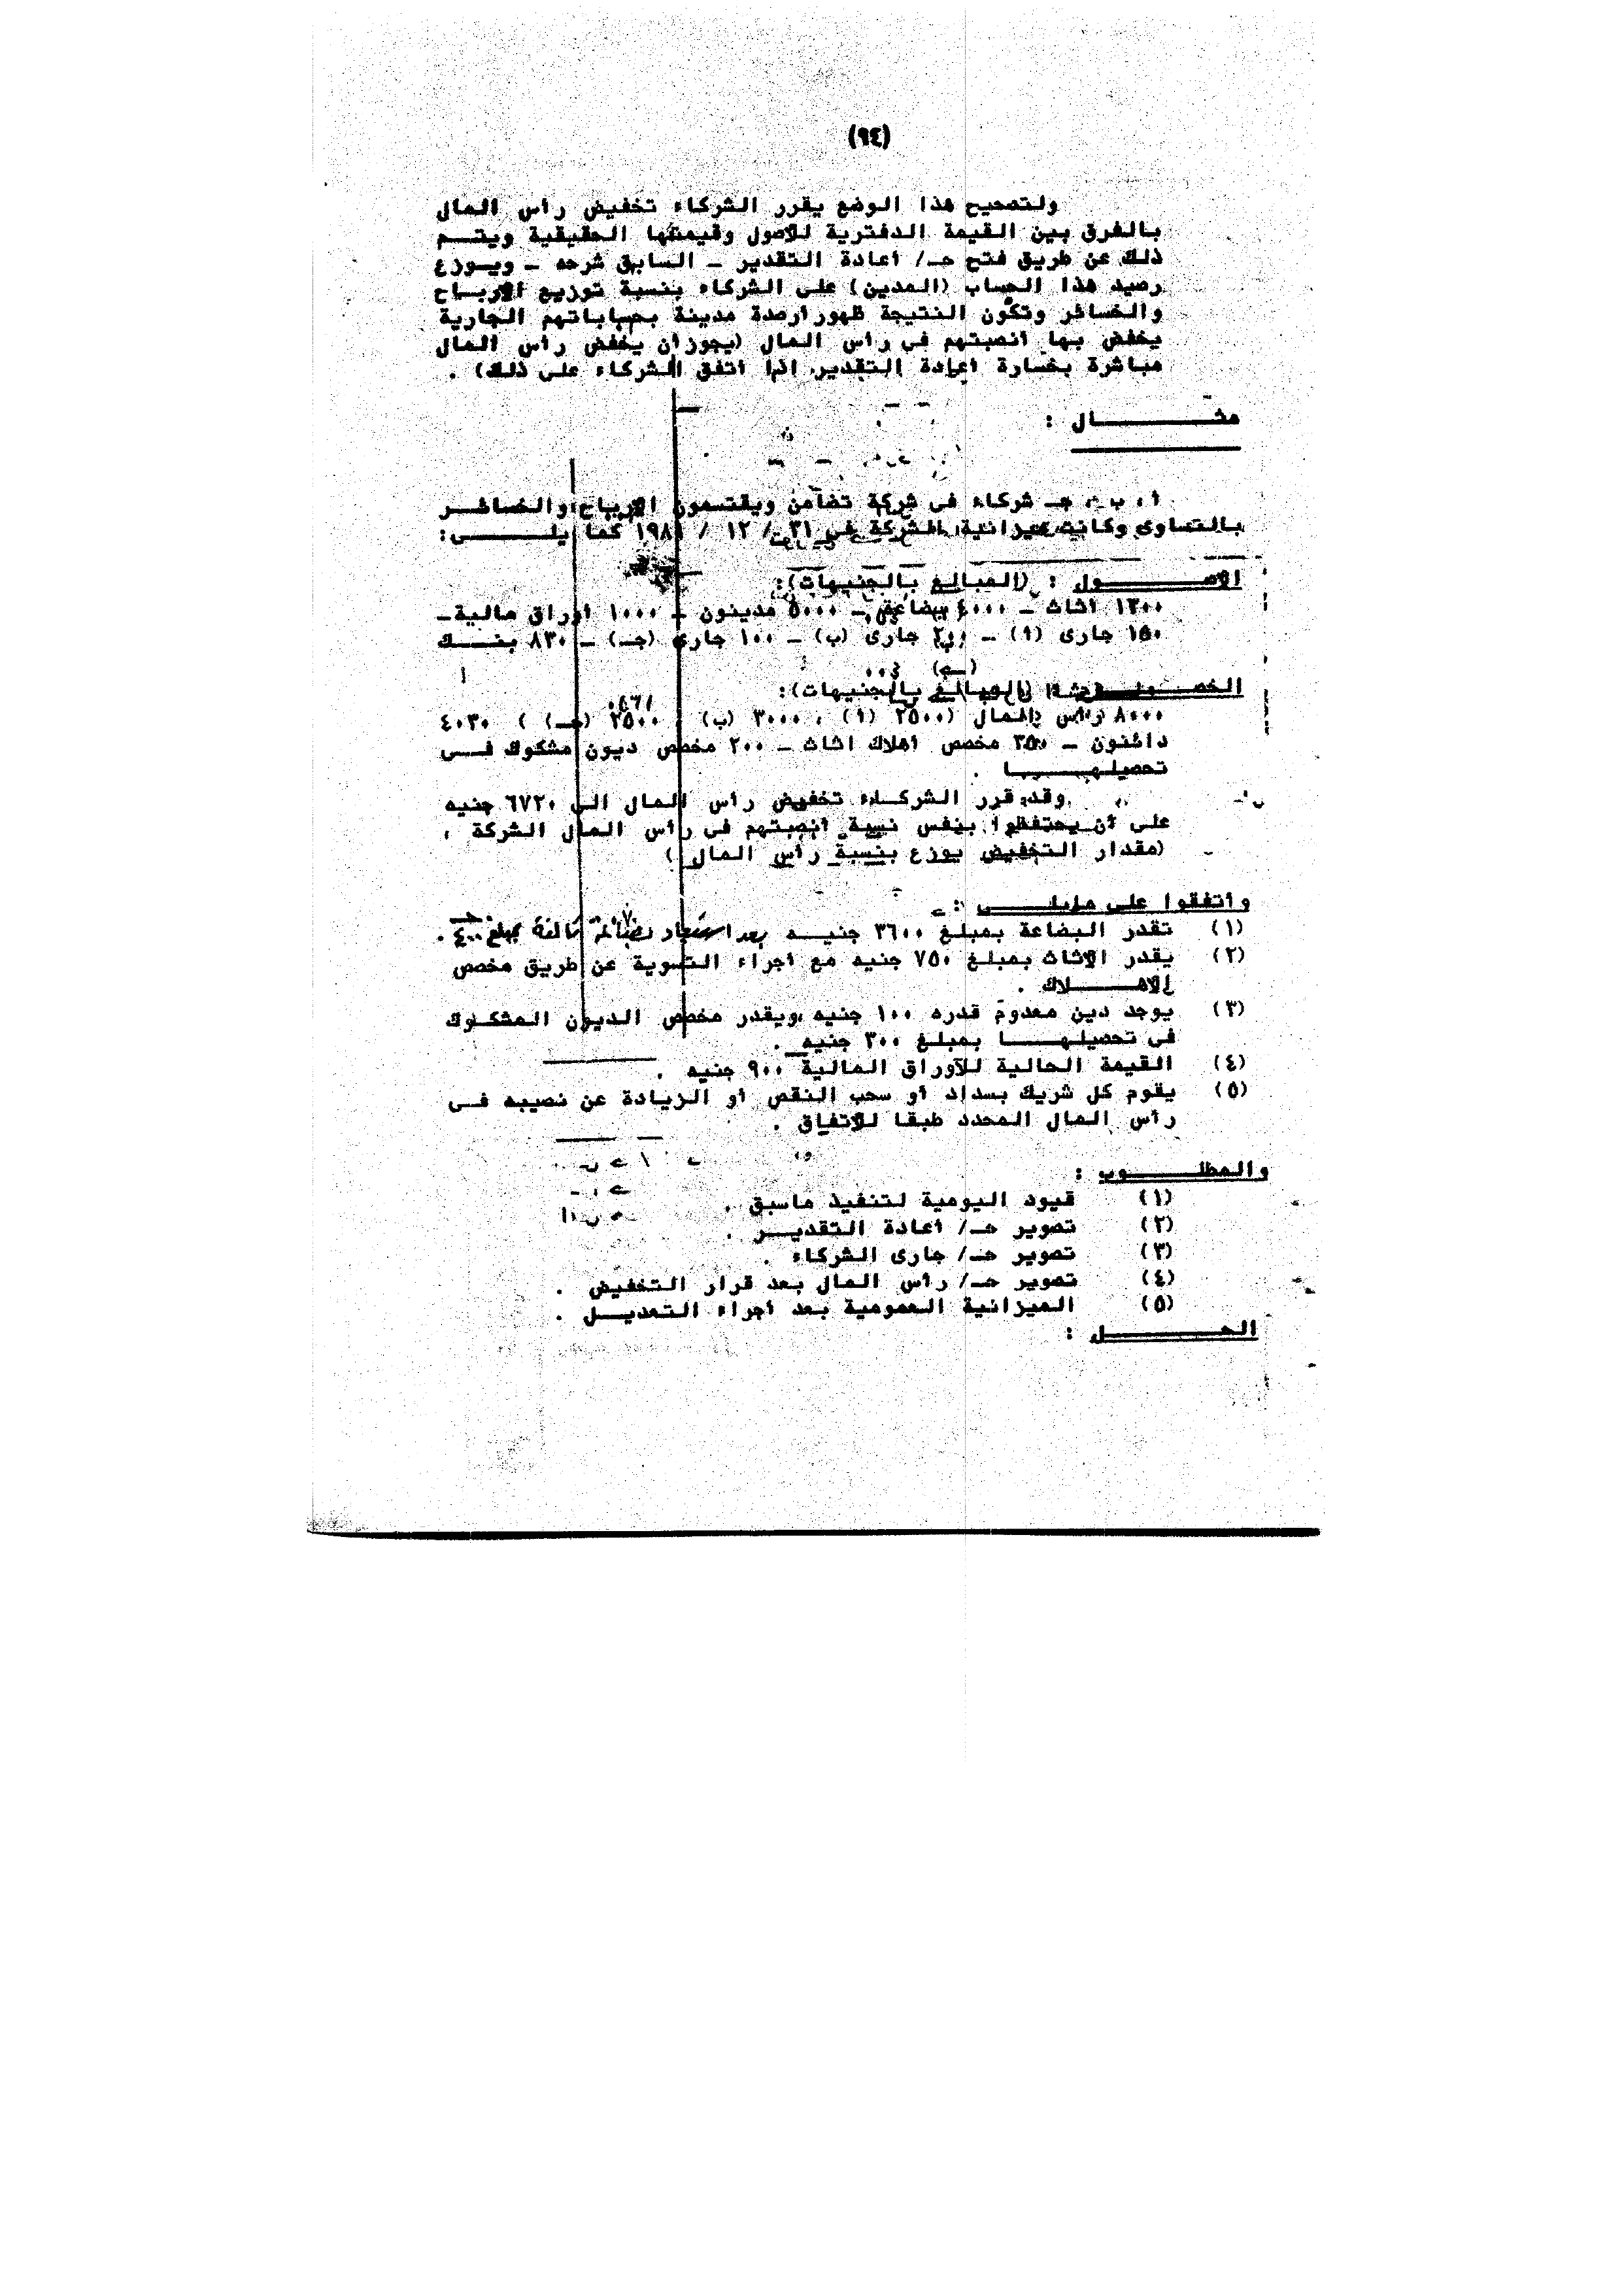 (٩٤)
ولتصحيح هذا الوضع يقرر الشركاء تخفيض رأس المال
بالفرق بين القيمة الدفترية للأصول وقيمتها الحقيقية ويتـــم
ذلك عن طريق فتح حـ/ أعادة التقدير ــ السابق شرحه ــ ويــوزع
رصيد هذا الحساب (المدين) على الشركاء بنسبة توزيع الأربــاح
والخسائر وتكون النتيجة ظهور أرصدة مدينة بحساباتهم الجارية
يخفض بها أنصبتهم فى رأس المال (يجوز أن يخفض رأس المال
مباشرة بخسارة أعادة التقدير اذا اتفق الشركاء على ذلك) .
مثــــــــــال :
أ ، ب ، جـ شركاء فى شركة تضامن ويقتسمون الأرباح والخسائـــر
بالتساوى وكانت ميزانية الشركة فى ٣١ / ١٢ / ١٩٨١ كما يلـــــــى:
الأصــــــــــول : (المبالغ بالجنيهات):
١٣٠٠ اثاث ــ ٤٠٠٠ بضاعة ــ ٥٠٠٠ مدينون ــ ١٠٠٠ أوراق مالية ــ
١٥٠ جارى (أ) ــ ٢٠٠ جارى (ب) ــ ١٠٠ جارى (جـ) ــ ٨٣٠ بنــــك
الخصـــــوم : (المبالغ بالجنيهات):
٨٠٠٠ رأس المال (٢٥٠٠ (أ) ، ٣٠٠٠ (ب) ، ٢٥٠٠ (جـ) ) ٤٠٣٠
دائنون ــ ٣٥٠ مخصص أهلاك اثاث ــ ٢٠٠ مخصص ديون مشكوك فــى
تحصيلهـــــــا .
وقد قرر الشركــاء تخفيض رأس المال الى ٦٧٢٠ جنيه
على أن يحتفظوا بنفس نسبة أنصبتهم فى رأس المال الشركة ،
(مقدار التخفيض يوزع بنسبة رأس المال )
وأتفقوا على مايلــــــــى :
(١) تقدر البضاعة بمبلغ ٣٦٠٠ جنيـــه بعد استبعاد بضائع تالفة بمبلغ ٤٠٠ .
(٢) يقدر الأثاث بمبلغ ٧٥٠ جنيه مع أجراء التسوية عن طريق مخصص
الأهـــــــلاك .
(٣) يوجد دين معدوم قدره ١٠٠ جنيه ويقدر مخصص الديون المشكــوك
فى تحصيلهـــــا بمبلغ ٣٠٠ جنيه .
(٤) القيمة الحالية للأوراق المالية ٩٠٠ جنيه .
(٥) يقوم كل شريك بسداد أو سحب النقص أو الزيادة عن نصيبه فــى
رأس المال المحدد طبقا للأتفاق .
والمطلـــــــوب :
(١) قيود اليومية لتنفيذ ماسبق .
(٢) تصوير حـ/ أعادة التقديـــر .
(٣) تصوير حـ/ جارى الشركاء .
(٤) تصوير حـ/ رأس المال بعد قرار التخفيض .
(٥) الميزانية العمومية بعد أجراء التعديـــل .
الحــــــــــل :